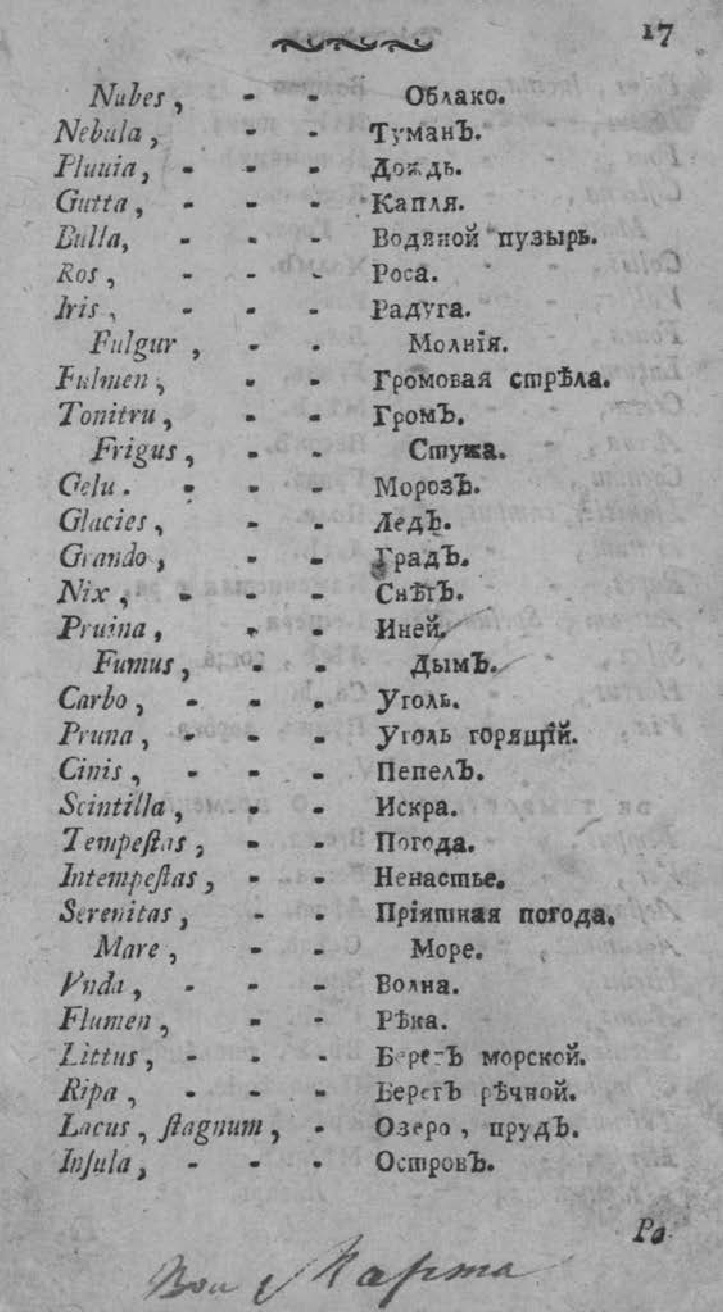 17
Nubes, - - Облако.
Nebula, - - ТуманЪ.
Pluuia, - - - Дождь.
Gutta, - - - Капля.
Bulla, - - - Водяной пузырь.
Ros, - - - Роса.
Iris, - - - Радуга.
Fulgur, - - Молнія.
Fulmen, - - Громовая стрѣла.
Tonitru, - - ГромЪ.
Frigus, - - Стужа.
Gelu. - - - МорозЪ.
Glacies, - - ЛедЪ.
Grando, - - ГрадЪ.
Nix, - - - СнѣгЪ.
Pruina, - - Иней.
Fumus, - - ДымЪ.
Carbo, - - - Уголь.
Pruna, - - - Уголь горящій.
Cinis, - - - ПепелЪ.
Scintilla, - - Искра.
Tempeſtas, - - Погода.
Intempeſtas, - - Ненастье.
Serenitas, - - Пріятная погода.
Mare, - - Море.
Vnda, - - - Волна.
Flumen, - - Рѣка.
Littus, - - - БерегЪ морской.
Ripa, - - - БерегЪ рѣчной.
Lacus, ſtagnum, - Озеро, прудЪ.
Inſula, - - - ОстровЪ.
Марта